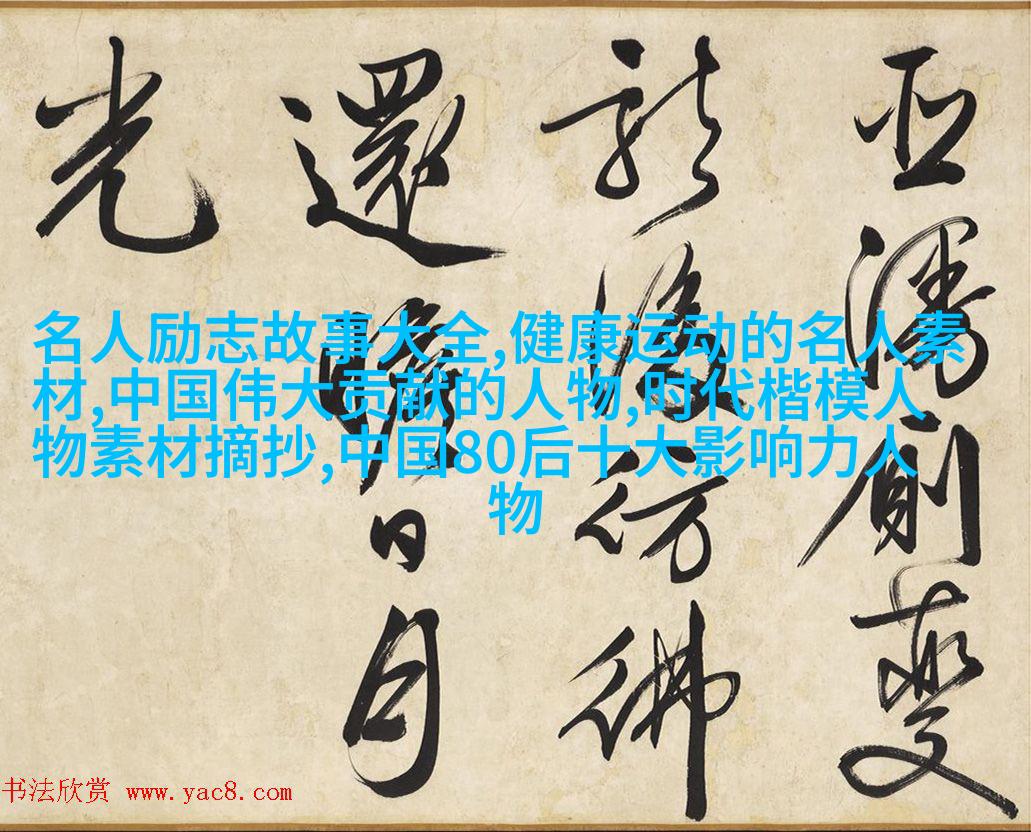 變
後彷彿
還日月
光
名人励志故事大全,健康运动的名人素
材,中国伟大贡献的人物,时代楷模人
物素材摘抄,中国80后十大影响力人
物
书法欣赏 www.yac8.com